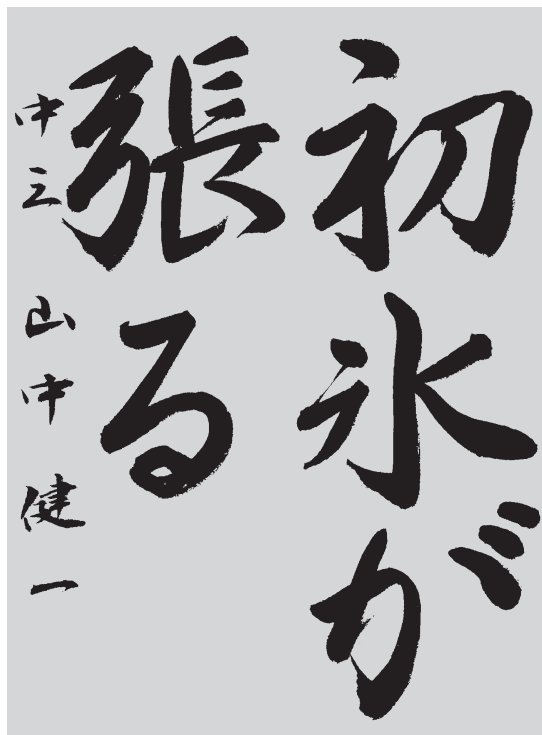 初氷が
張る
中三 山中健一